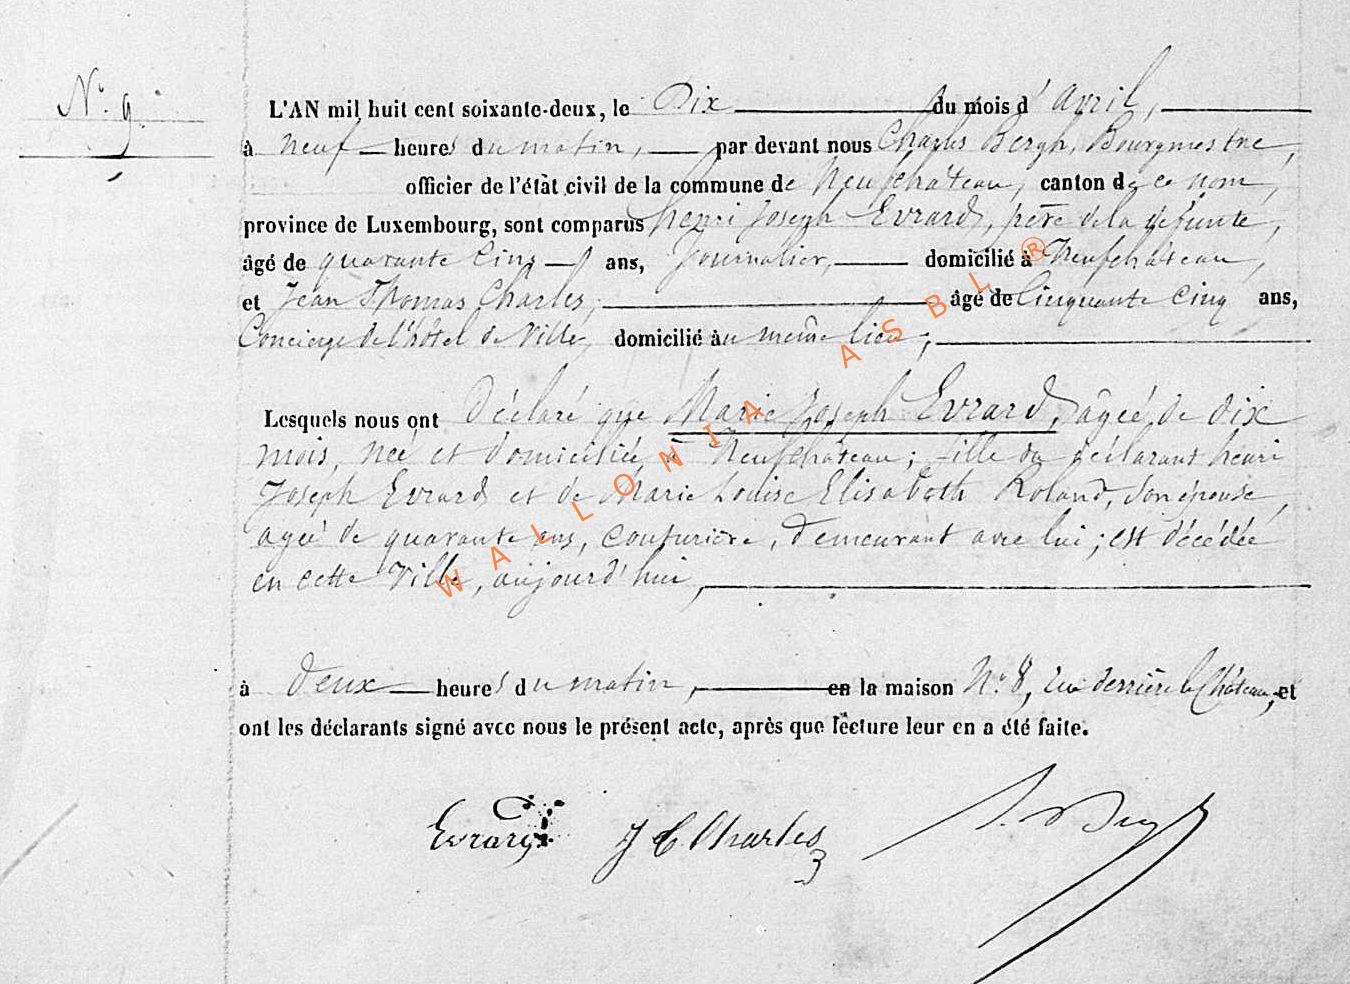 N° 9.
L'AN mil huit cent soixante-deux, le Dix du mois d'avril,
à neuf heures du matin, par devant nous Charles Bergh, Bourgmestre,
officier de l'état civil de la commune de Neufchâteau, canton de ce nom,
province de Luxembourg, sont comparus henri Joseph Evrard, père de la défunte,
âgé de quarante cinq ans, Journalier, domicilié à Neufchâteau,
et Jean Thomas Charles, âgé de Cinquante cinq ans,
Concierge de l'hôtel de Ville, domicilié au même lieu;
Lesquels nous ont Déclaré que Marie Joseph Evrard, âgée de dix
mois, née et domiciliée à Neufchâteau; fille du déclarant henri
Joseph Evrard et de Marie Louise Elisabeth Roland, son épouse,
agée de quarante ans, couturière, demeurant avec lui; est décédée
en cette Ville, aujourd'hui,
à deux heures du matin, en la maison N° 8, rue derrière le Château, et
ont les déclarants signé avec nous le présent acte, après que lecture leur en a été faite.
Evrard J C Charles
WALLONIA ASBL ®